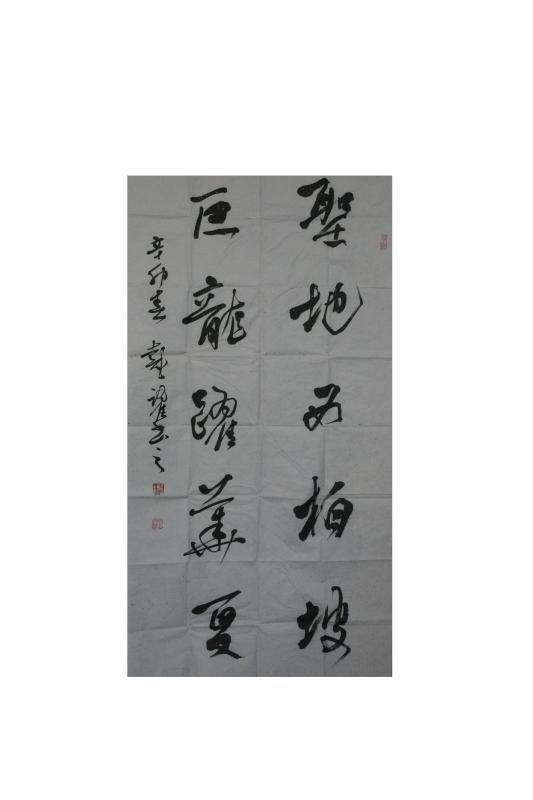 聖地西柏坡
巨龍躍華夏
辛卯春 戴躍書之